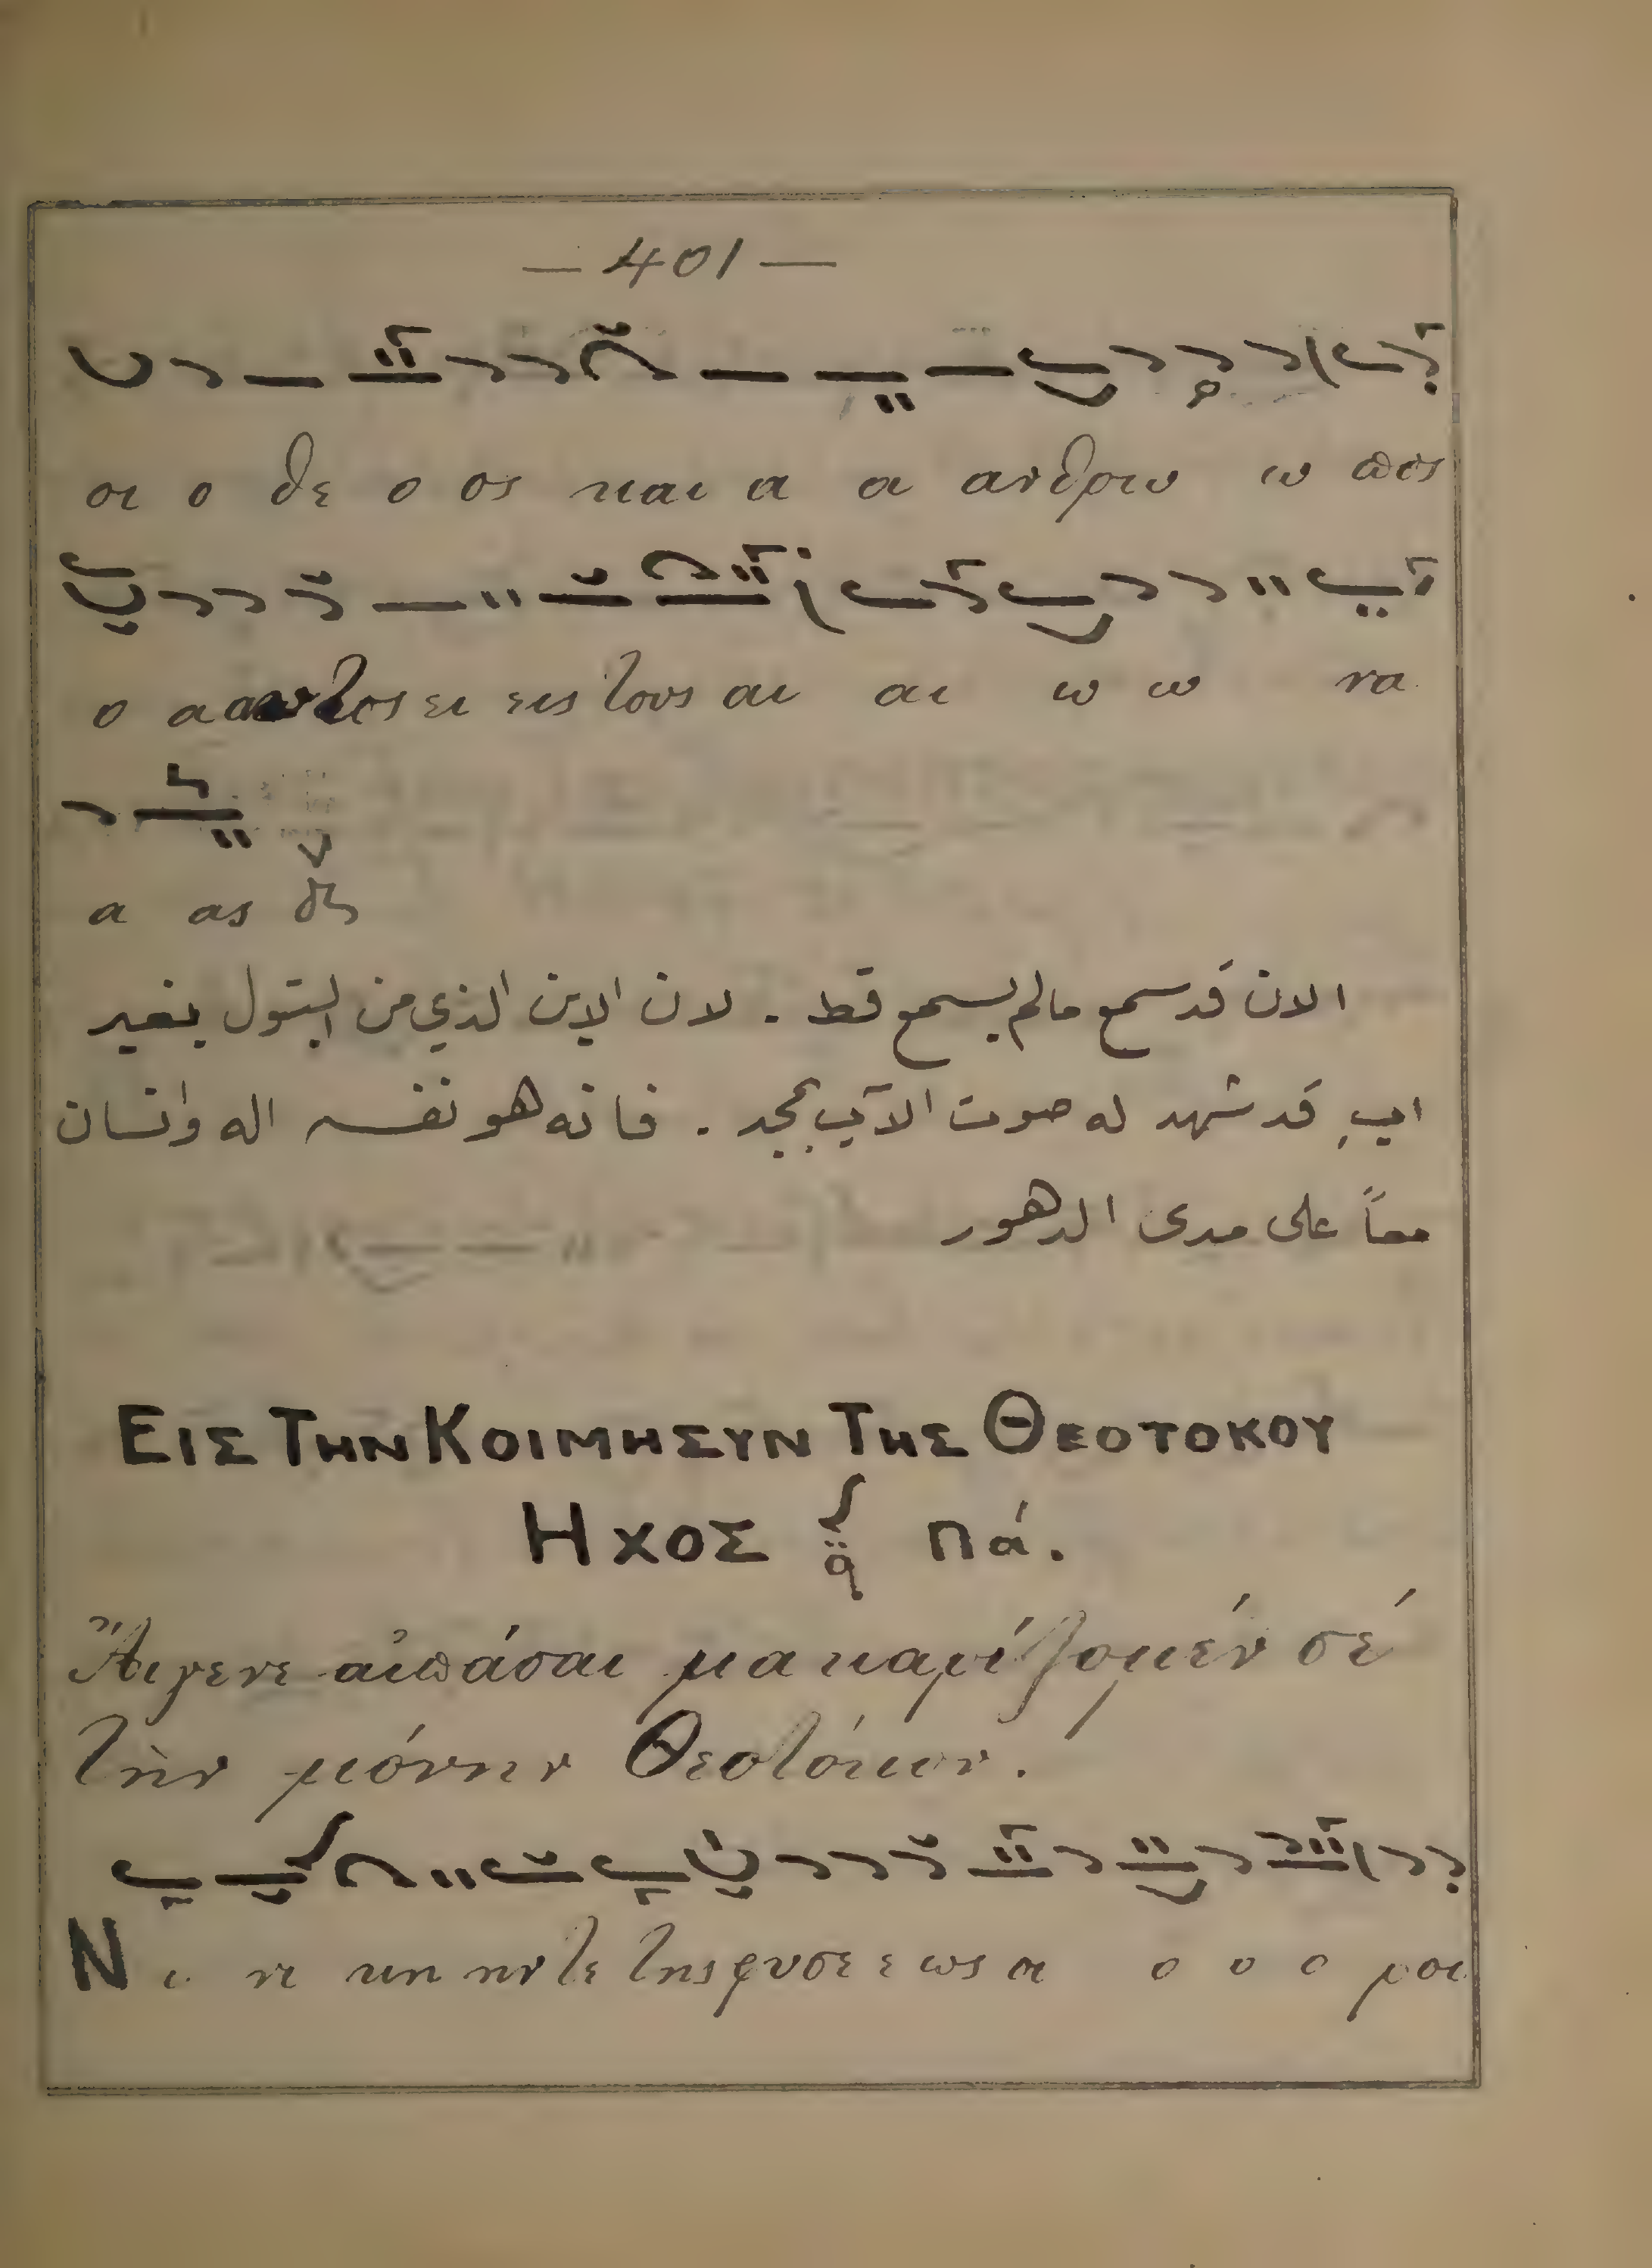 — 401 —
οι ο θε ο ος και α α ανθρω ω πος
ο α αυτος ει εις τους αι αι ω ω να
α ας
الان قد سمع مالم يسمع قط . لان الابن الذي من البتول بغير
ابٍ قد شهد له صوت الآب بمجد . فانه هو نفسه اله وانسان
معاً على مدى الدهور
ΕΙΣ ΤΗΝ ΚΟΙΜΗΣΥΝ ΤΗΣ ΘΕΟΤΟΚΟΥ
ΗΧΟΣ Πά.
Ἄιγενε αἱπάσαι μακαρίζομέν σέ
τὴν μόνην Θεοτόκον.
Ν ι νι κη ηντε της φυσε ε ως οι ο ο ο ροι